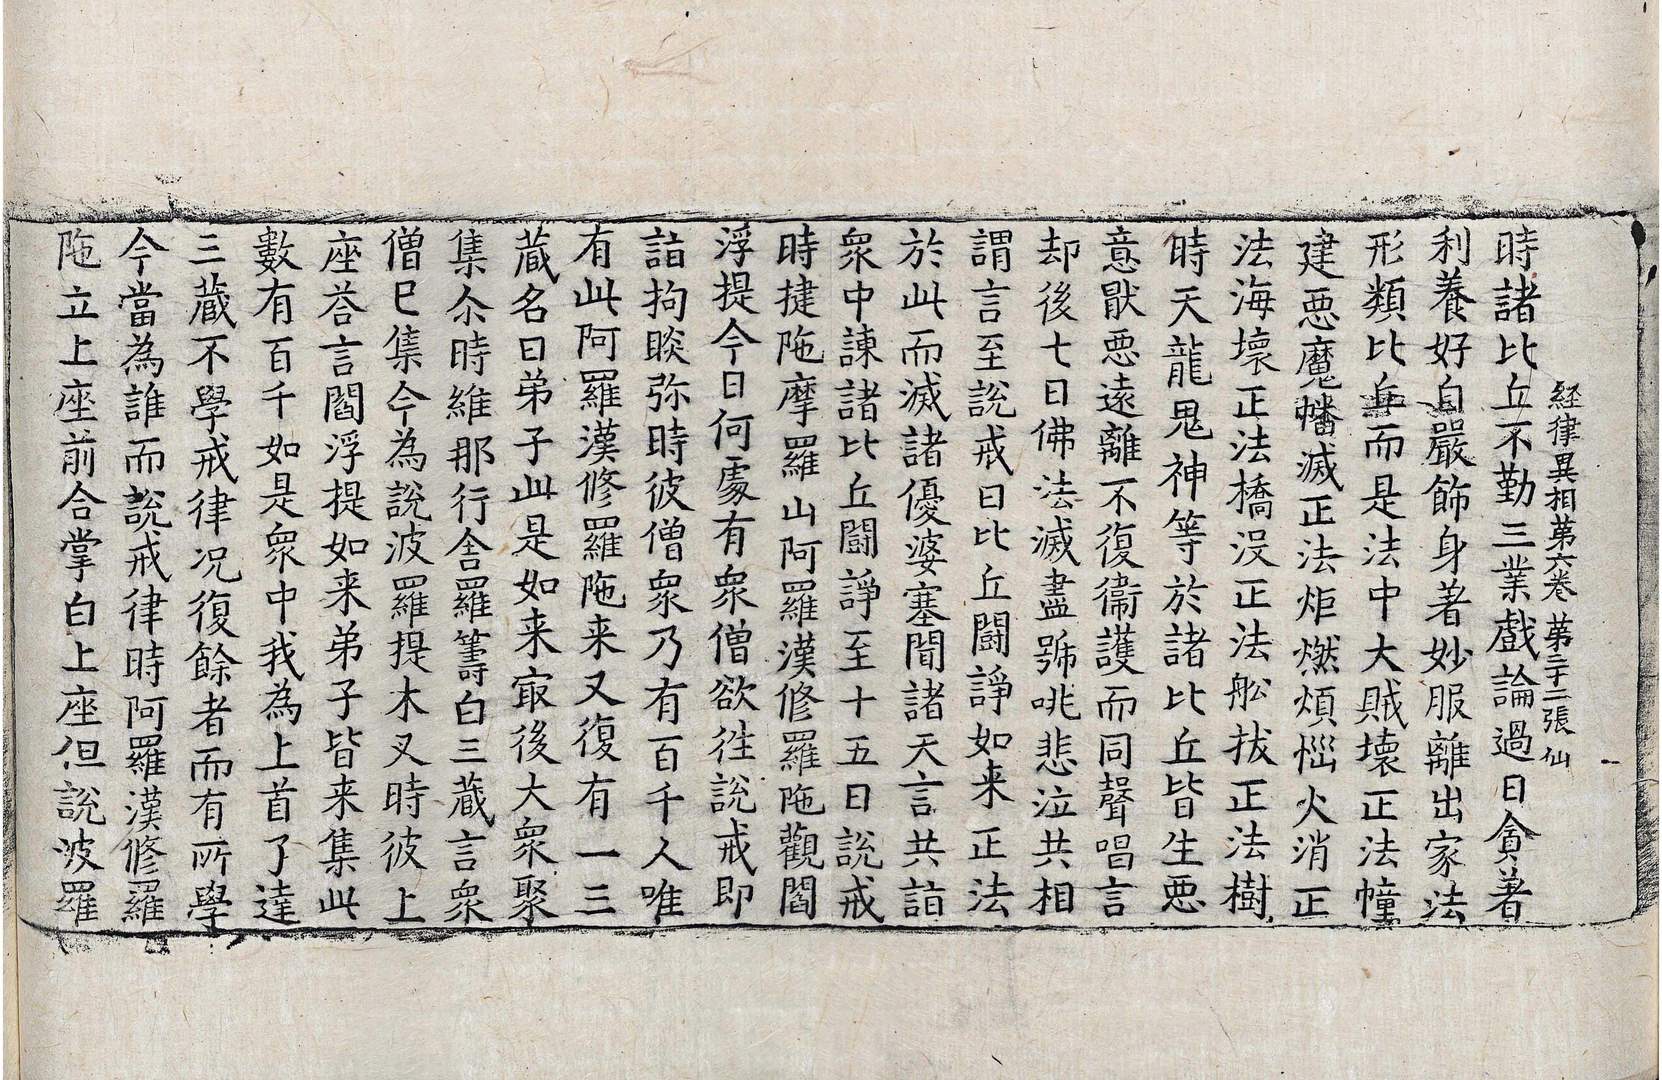 経律異相第六卷 第三十二張 仙
時諸比丘不勤三業戲論過日貪著
利養好自嚴飾身著妙服離出家法
形類比丘而是法中大賊壞正法幢
建惡魔幡滅正法炬燃煩惱火消正
法海壞正法橋沒正法舩拔正法樹
時天龍鬼神等於諸比丘皆生惡
意猒惡遠離不復衞護而同聲唱言
却後七日佛法滅盡號咷悲泣共相
謂言至說戒日比丘鬪諍如来正法
於此而滅諸優婆塞聞諸天言共詣
衆中諫諸比丘鬪諍至十五日說戒
時揵陁摩羅山阿羅漢修羅陁觀閻
浮提今日何處有衆僧欲徃說戒即
詣拘睒弥時彼僧衆乃有百千人唯
有此阿羅漢修羅陁来又復有一三
蔵名曰弟子此是如来冣後大衆聚
集尒時維那行舍羅籌白三蔵言衆
僧已集今為說波羅提木叉時彼上
座荅言閻浮提如来弟子皆来集此
數有百千如是衆中我為上首了達
三蔵不學戒律况復餘者而有所學
今當為誰而說戒律時阿羅漢修羅
陁立上座前合掌白上座但說波羅